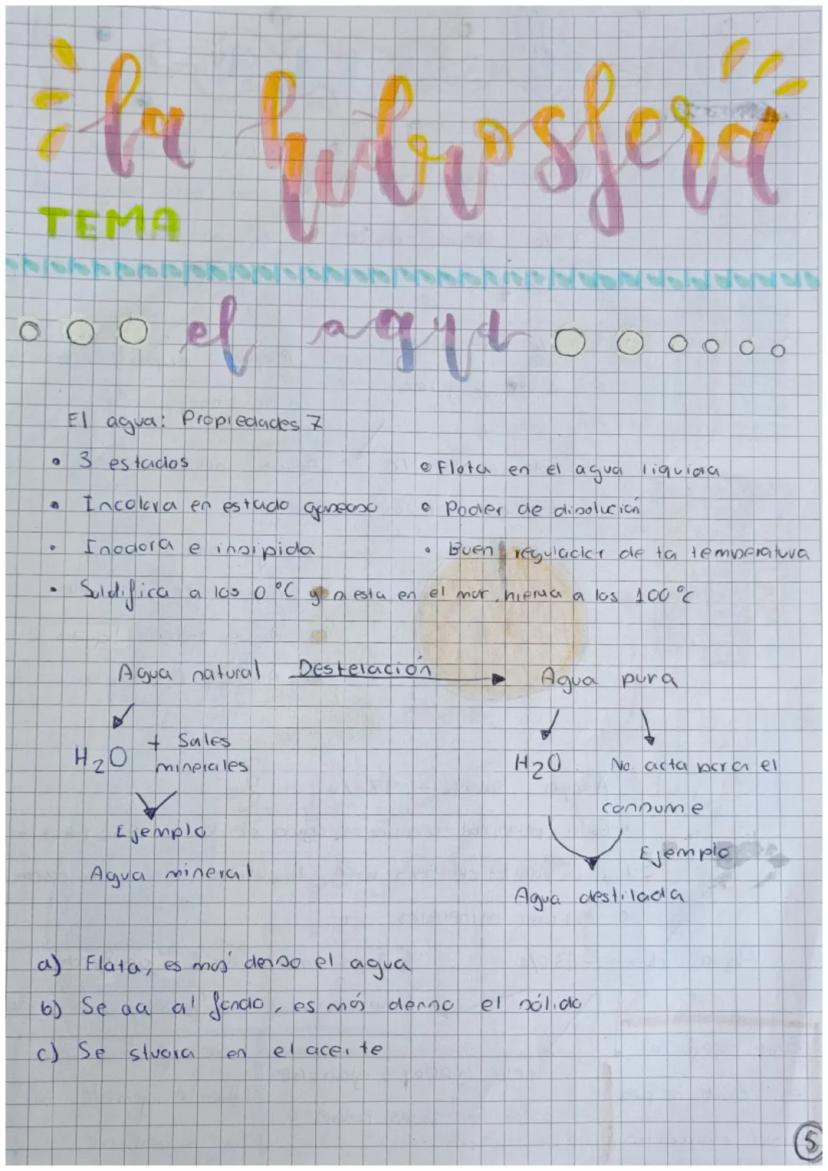 la hidrosfera
TEMA
el agua
El agua: Propiedades 7
• 3 estados
• Flota en el agua liquida
• Incolora en estado gaseoso
• Poder de disolución
• Inodora e insipida
• Buen regulador de la temperatura
• Solidifica a los 0 °C y si esta en el mar, hierve a los 100 °C
Agua natural Destelación Agua pura
H2O + Sales minerales
H2O No acta para el consume
Ejemplo
Agua mineral
Ejemplo
Agua destilada
a) Flata, es mas denso el agua
b) Se va al fondo, es más denso el sólido
c) Se en el aceite
5